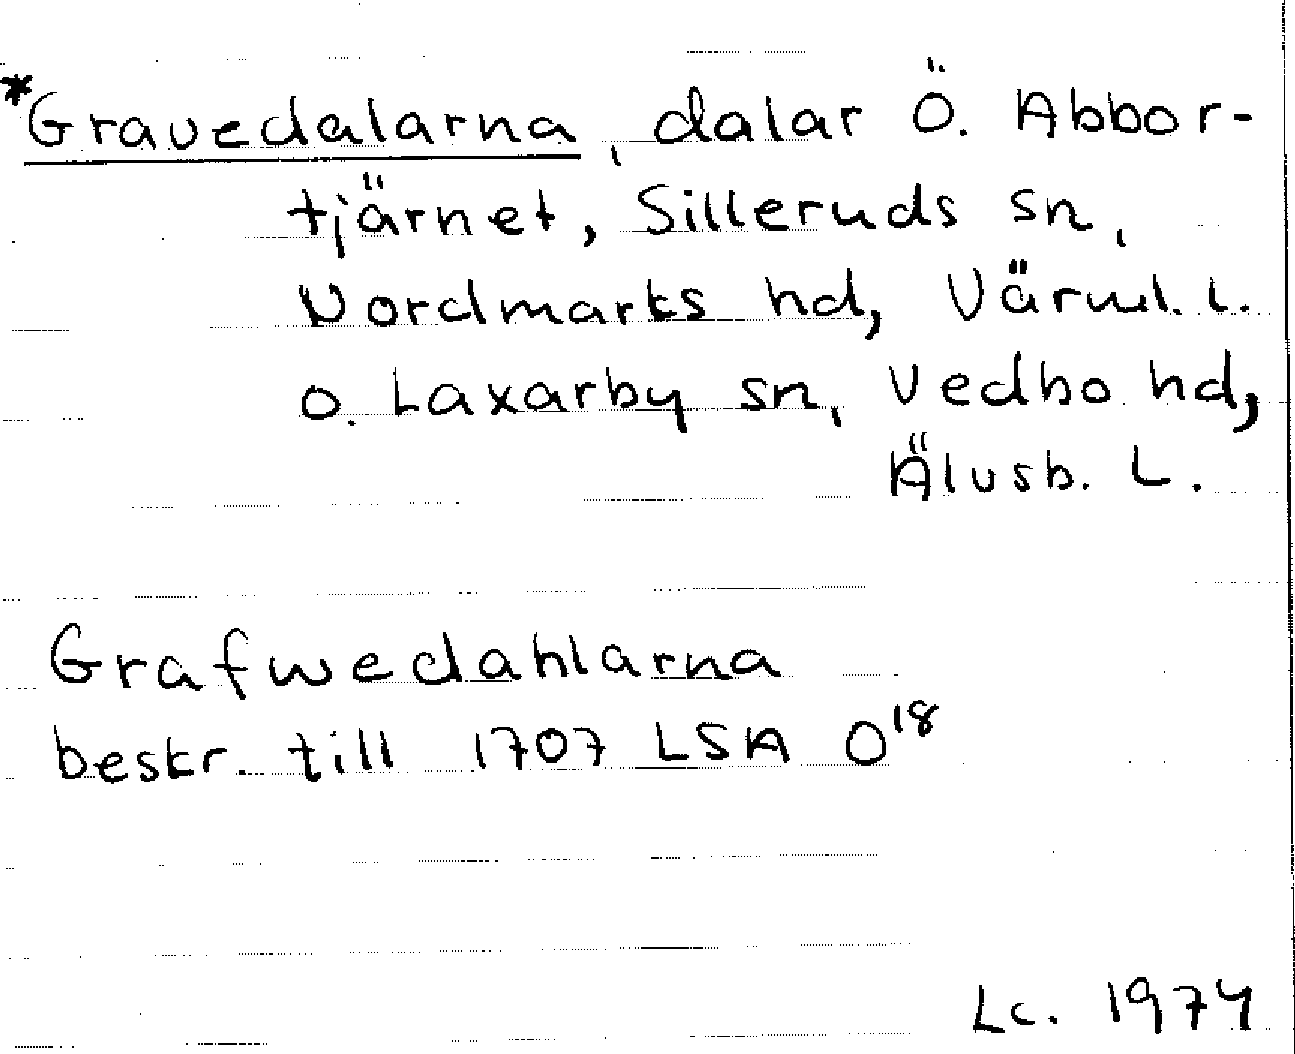 *Gravedalarna, dalar Ö. Abbor-
tjärnet, Silleruds sn,
Nordmarks hd, Värml. l.
o. Laxarby sn, Vedbo hd,
Älvsb. L.
Grafwedahlarna
beskr. till 1707 LSA O18
Lc. 1974